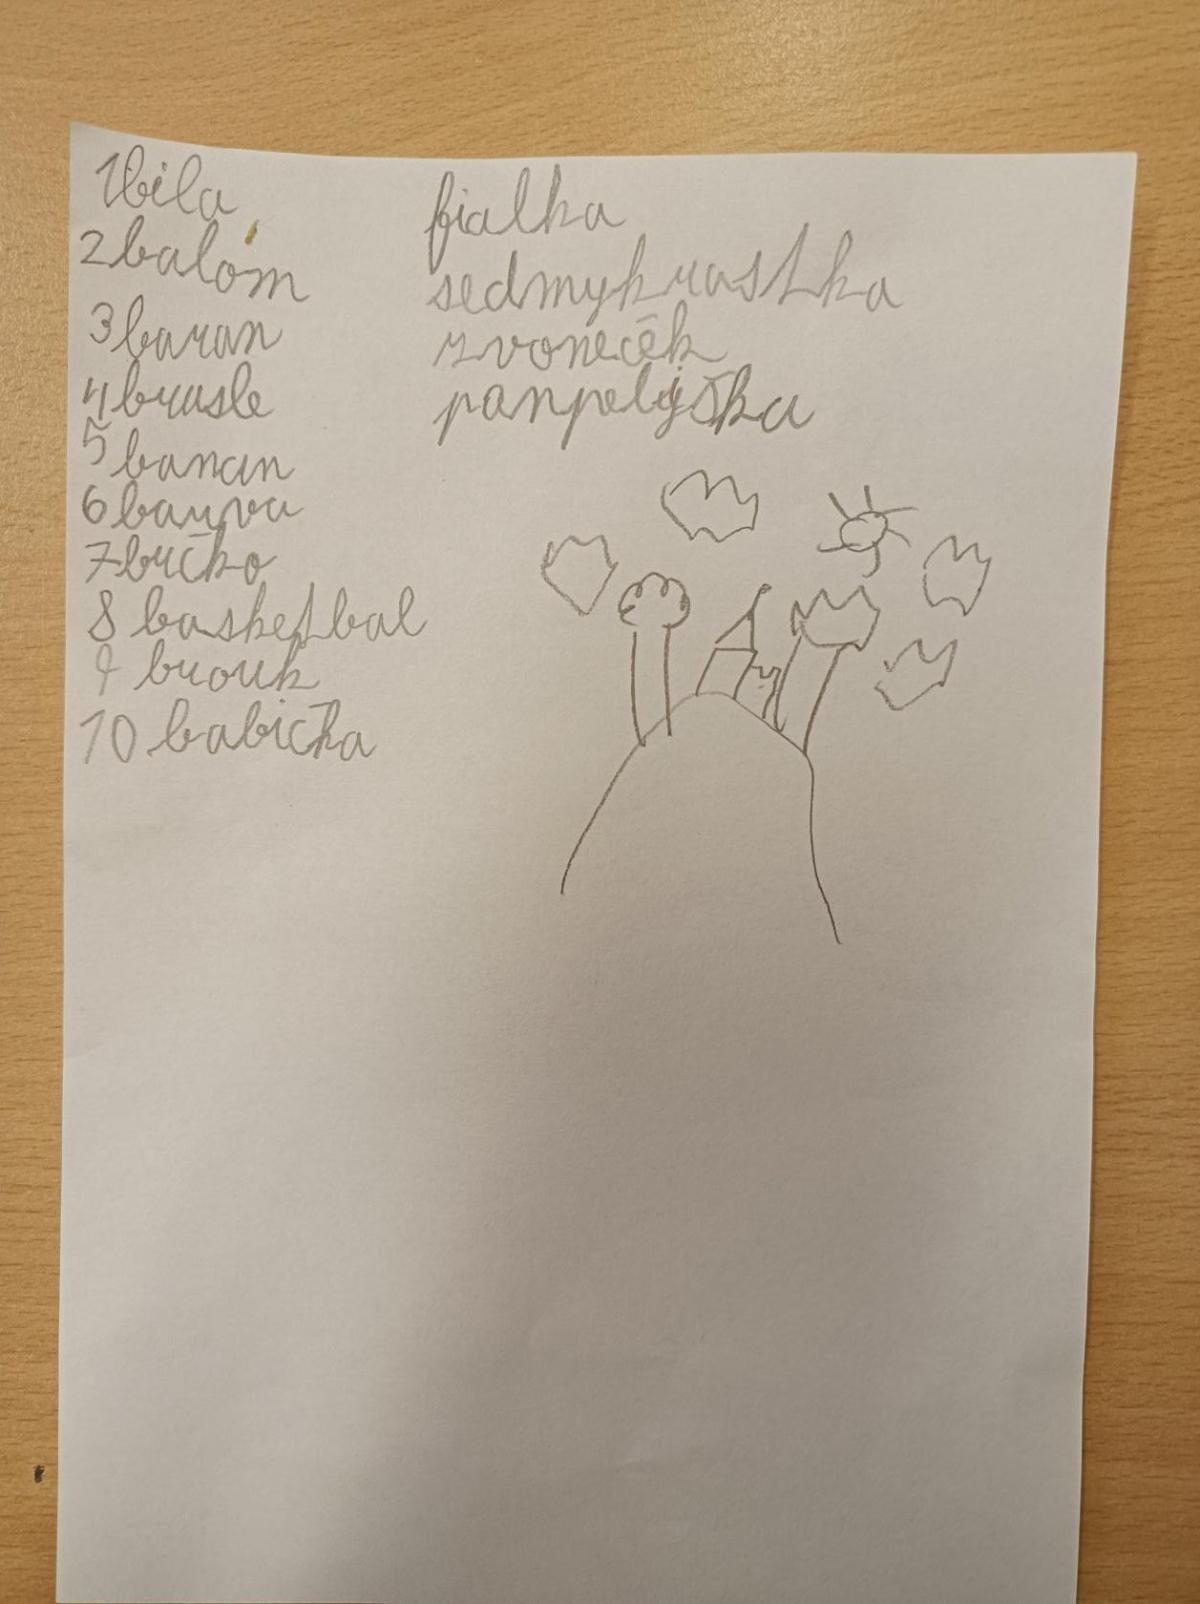 1 bila
2 balóm
3 baran
4 brasle
5 banan
6 barva
7 brčko
8 basketbal
9 brouk
10 babička
fialka
sedmykrastka
zvoneček
panpelyška